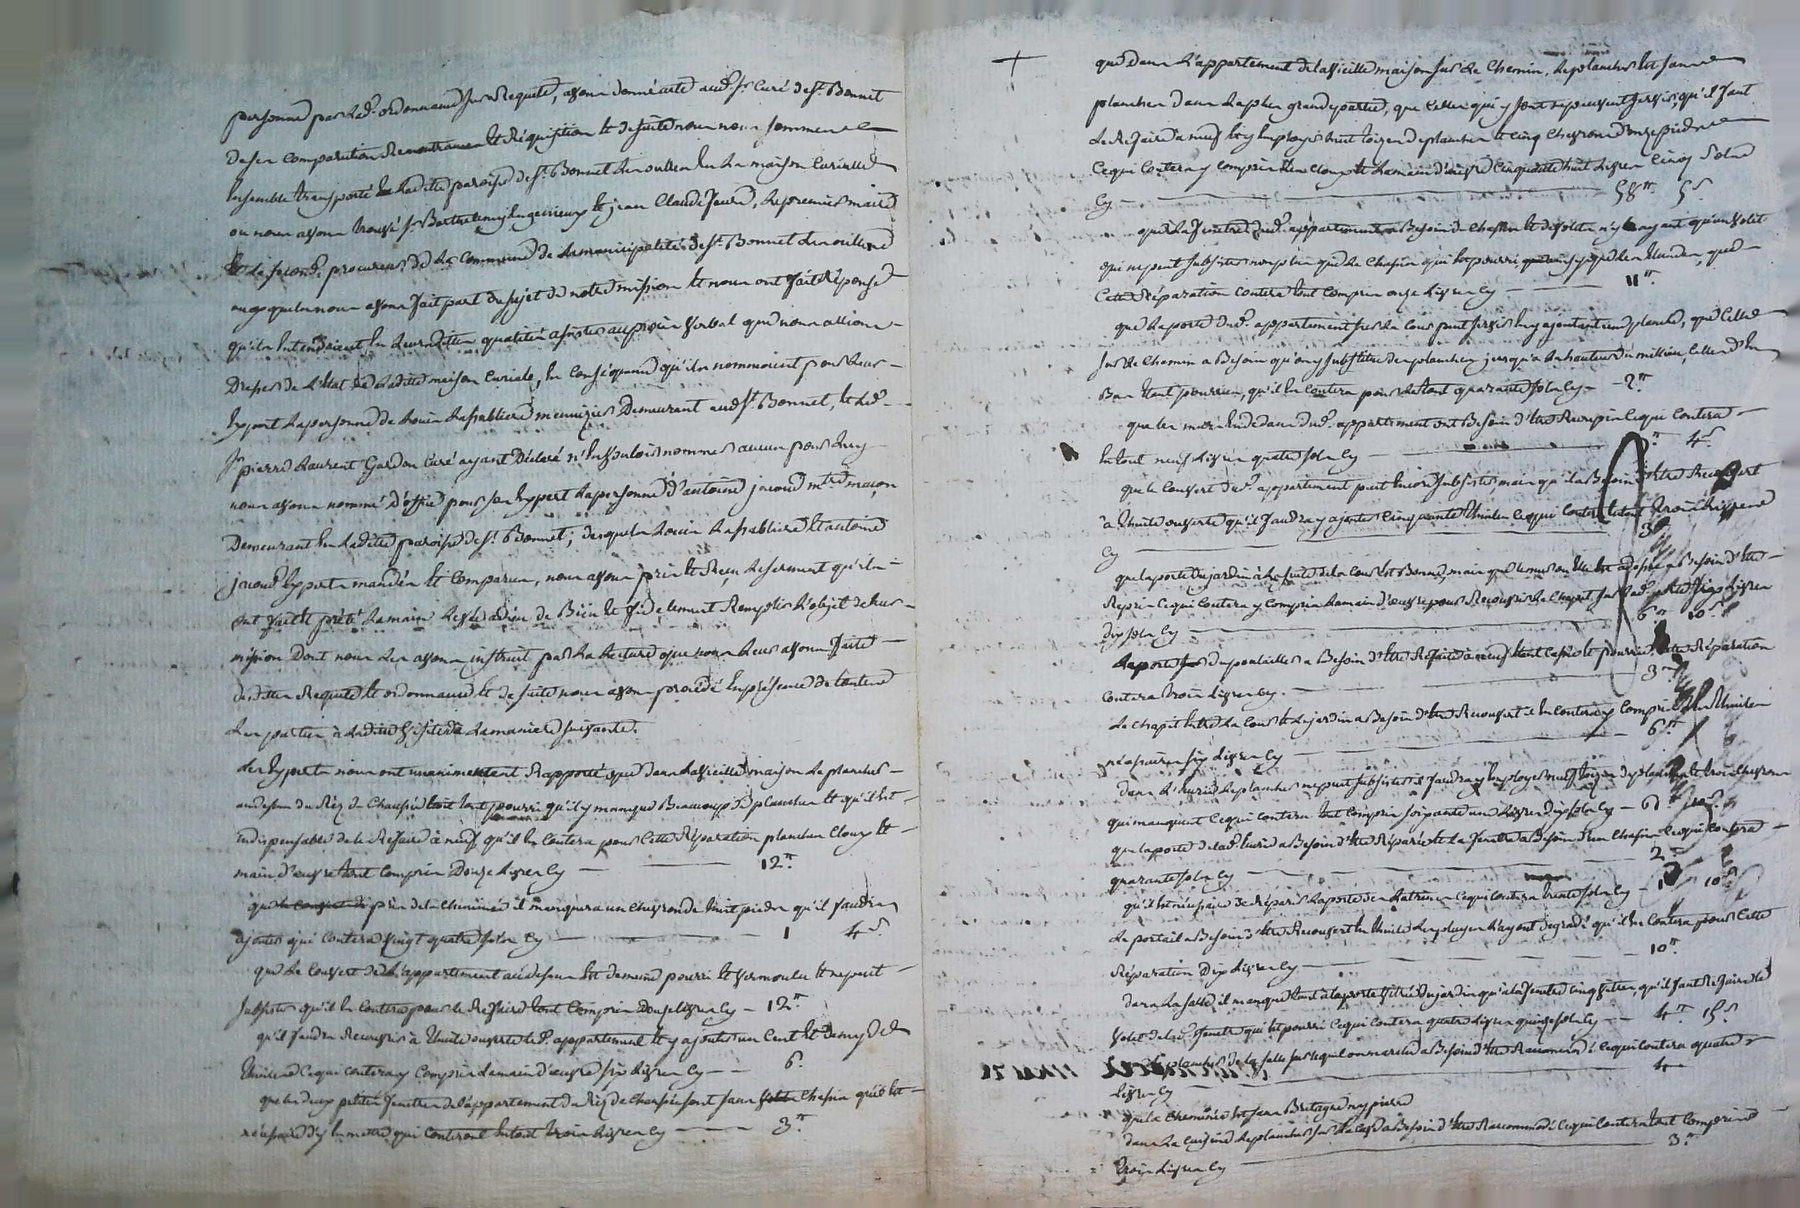 personne par lad. ordonnance sur Requete, avons donné acte aud. Sr Curé de St. Bonnet
de ses Comparution Remontrances et Réquisition et de suite nous nous sommes
Ensemble transporté en ladite paroisse de St. Bonnet les oulles en la maison Curialle
ou nous avons trouvé Sr Barthelemy et jean Claude le premier maire
et le second procureur de la Commune de la municipalité de St. Bonnet les oulles
auxquels nous avons fait part du sujet de notre mission et nous ont fait Réponse
qu'ils Entendoient En leurs dittes qualités assister au procès verbal que nous allions
Dresser de L'Etat de ladite maison Curiale, En Conséquence qu'ils nommoient pour leur
Expert la personne de Louis Lasabliere menuizier Demeurant aud. St. Bonnet, et led.
Sr pierre Laurent Gardon Curé ayant Déclaré n'En vouloir nommer aucun pour luy
nous avons nommé D'office pour son Expert la personne d'antoine jacoud mtre maçon
Demeurant En ladite paroisse de St. Bonnet; desquels Louis Lasabliere et antoine
jacoud Experts mandés et Comparus, nous avons pris et Reçu le serment qu'ils
ont fait et prêté la main levée à dieu de Bien et fidelement Remplir L'objet de leur
mission Dont nous les avons instruit par la lecture que nous leur avons faite
desdittes Requete et ordonnance et de suite nous avons procédé En présence de toutes
les parties à ladite visite de la maniere suivante.
Les Experts nous ont unanimement Rapporté que dans la vieille maison le plancher
au dessus du Rez de Chaussée est tout pourri qu'il y manque Beaucoup de planches et qu'il est
indispensable de le Refaire à neuf, qu'il En Coutera pour Cette Réparation planches Cloux et
main d'œuvre tout Compris Douze Livres Cy 12.tt
que près de la Cheminée il manque un Chevron de huit pieds qu'il faudra
ajouter qui Coutera vingt quatre sols Cy 1 4.s
que le Couvert de L'appartement au dessus Est de meme pourri et vermoulu et ne peut
subsister qu'il En Coutera pour le Refaire tout Compris Douze Livres Cy 12.tt
qu'il faudra Recouvrir à thuile ouverte led. appartement et y ajouter un Cent et demy de
thuiles Ce qui Coutera y Compris la main d'œuvre six Livres Cy 6.
que les deux petites fenetres de l'appartement du Rez de Chaussée sont sans Chassis qu'il Est
nécessaire d'y En mettre qui Couteront En tout trois Livres Cy 3.tt
que dans L'appartement de la vieille maison sur le Chemin, le plancher Est sans
planches dans la plus grande partie, que Celles qui y sont ne peuvent servir, qu'il faut
le Refaire à neuf Et y Employer huit toizes de planches et Cinq Chevrons d'onze pieds
Ce qui Coutera y Compris les Cloux et la main d'œuvre Cinquante huit Livres Cinq Sols
Cy 58.tt 5.s
que la fenetre dud. appartement a Besoin de Chassis et de volets n'y ayant qu'un volet
qui ne peut subsister non plus que le Chassis qui Est pourri que
Cette Réparation Coutera tout Compris onze Livres Cy 11.tt
que la porte dud. appartement sur la Cour peut servir En y ajoutant une planche, que Celle
sur le Chemin a Besoin qu'on y substitue des planches jusqu'à la hauteur du millieu, Celles d'En
Bas Etant pourries, qu'il En Coutera pour le tout quarante sols Cy 2.tt
que les murs En dedans dud. appartement ont Besoin d'Etre Recrepis Ce qui Coutera
En tout neuf Livres quatre sols Cy 9.tt 4.s
que le Couvert dud. appartement peut Encore subsister, mais qu'il a Besoin d'Etre Recouvert
à thuile ouverte qu'il faudra y ajouter Cinquante thuiles Ce qui Coutera Etant trois Livres
Cy 3.tt
que la porte du jardin à la suite de la Cour Est Bonne, mais que le mur ou Elle Est adossée a Besoin d'Etre
Repris Ce qui Coutera y Compris la main d'œuvre pour Recouvrir le Chapit sur lad. porte six Livres
dix sols Cy 6.tt 10.s
La porte du poulailler a Besoin d'Etre Refaite à neuf Etant Cassée et pourrie, Cette Réparation
Coutera trois Livres Cy. 3.tt
Le Chapit Entre la Cour et le jardin a Besoin d'Etre Recouvert il En Coutera y Compris les thuiles
nécessaires six Livres Cy 6.tt
dans L'Ecurie le plancher ne peut subsister il faudra y Employer neuf toizes de planches et trois Chevrons
qui manquent Ce qui Coutera tout Compris soixante une Livres dix sols Cy 61.tt 10.s
que la porte de lad. Ecurie a Besoin d'Etre Réparée et la fenetre a Besoin d'un Chassis Ce qui Coutera
quarante sols Cy 2.tt
qu'il Est nécessaire de Réparer la porte des Latrines Ce qui Coutera trente sols Cy 1 10.s
Le portail a Besoin d'Etre Recouvert En thuile les pluyes L'ayant dégradé qu'il En Coutera pour Cette
Réparation Dix Livres Cy 10.tt
dans la salle il manque tant à la porte vitrée du jardin qu'à la fenetre Cinq vitres, qu'il faut Refaire le
volet de lad. fenetre qui Est pourri Ce qui Coutera quatre Livres quinze sols Cy 4.tt 15.s
Le plancher de la salle sur lequel on marche a Besoin d'Etre Raccommodé Ce qui Coutera quatre
Livres Cy 4
que la Cheminée Est sans Bretagne ny pierre
dans la Cuisine le plancher sur la Cave a Besoin d'Etre Raccommodé Ce qui Coutera tout Compris
trois Livres Cy 3.tt